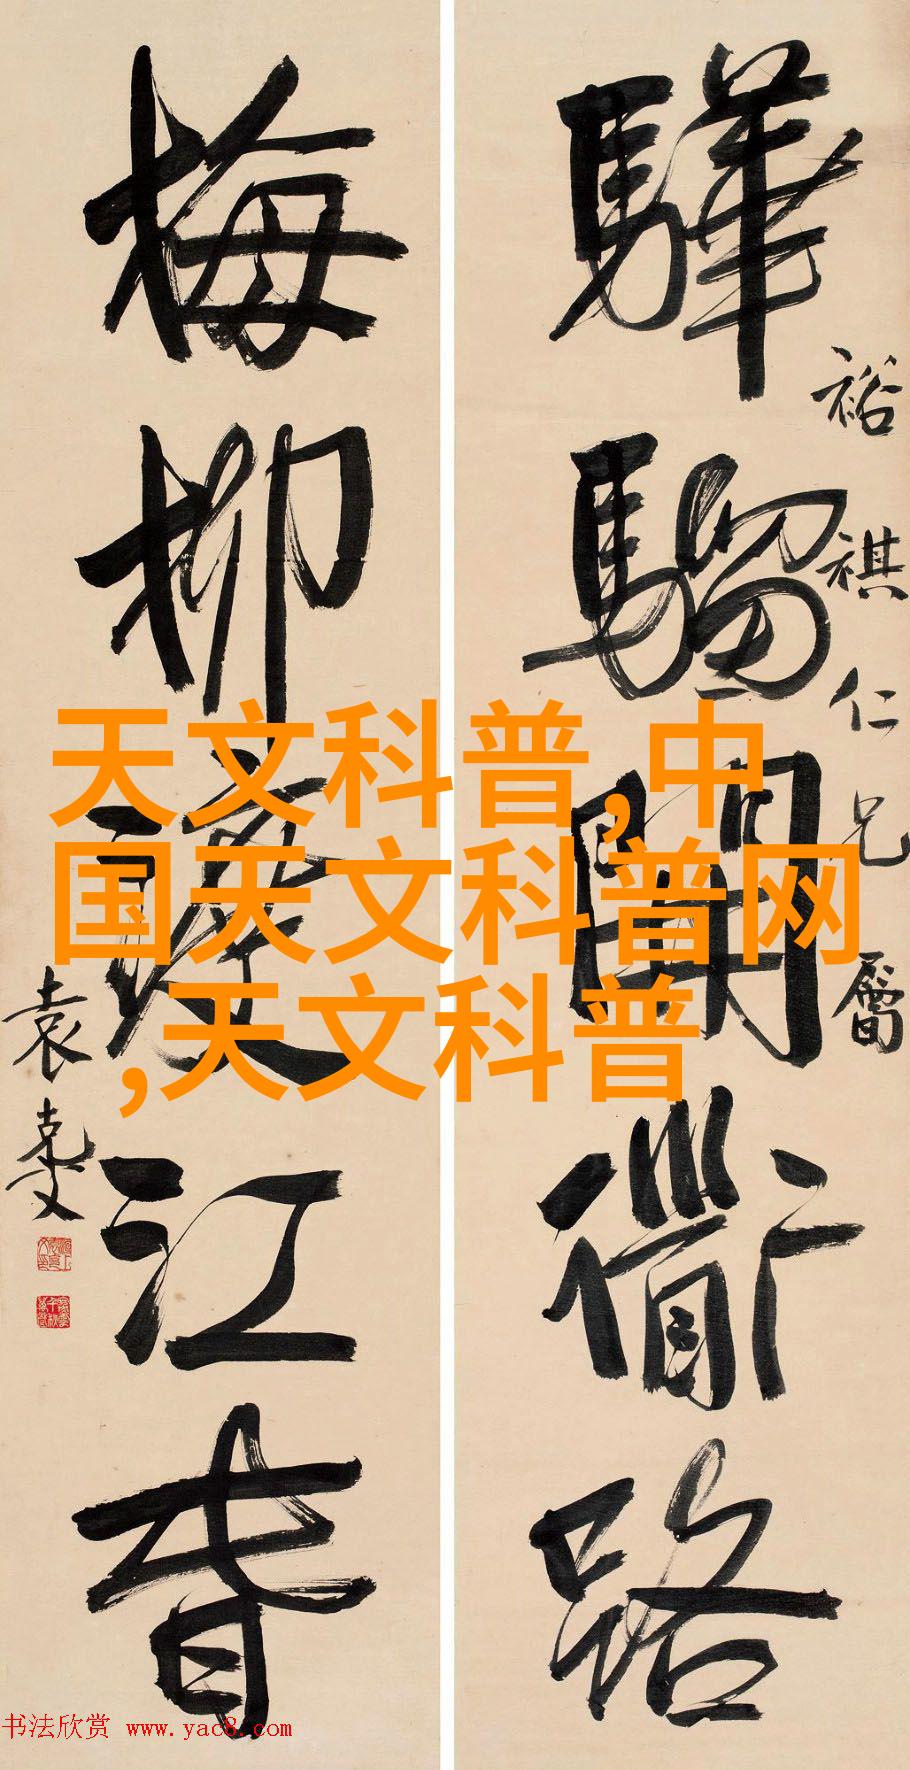 裕祺仁兄屬
驊騮開衜路
梅柳渡江春
袁克文
天文科普,中
国天文科普网
,天文科普
书法欣赏 www.yac8.com